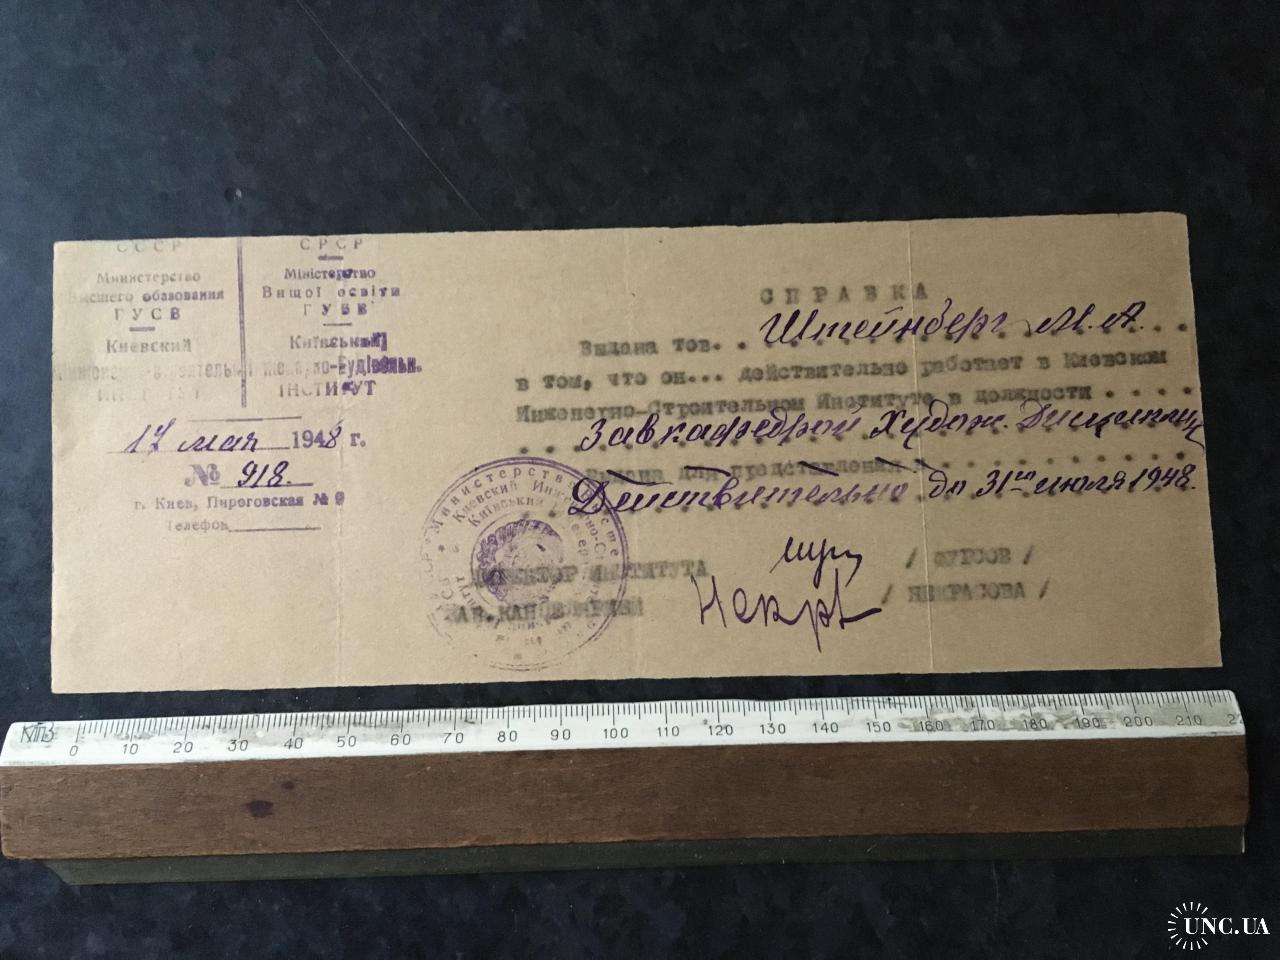 СССР
Министерство
Высшего обазования
ГУСВ
Киевский
ИНСТИТУТ
СРСР
Міністерство
Вищої освіти
ГУБВ
Київський
Інженерно-Будівельн.
ІНСТИТУТ
17 мая 1948 г.
№ 918.
г. Киев, Пироговская № 9
Телефон
СПРАВКА
Выдана тов. Штейнберг М.А.
в том, что он... действительно работает в Киевском
Инженерно-Строительном Институте в должности
Завкафедрой Худож. Дисциплин
Выдана для представления
Действительно до 31го июля 1948.
ДИРЕКТОР ИНСТИТУТА / ФУРСОВ /
ЗАВ. КАНЦЕЛЯРИЕЙ Некр / НЕКРАСОВА /
Министерство
Киевский Инженерно-С
Київський
КПЗ
0 10 20 30 40 50 60 70 80 90 100 110 120 130 140 150 160 170 180 190 200 210 22
UNC.UA